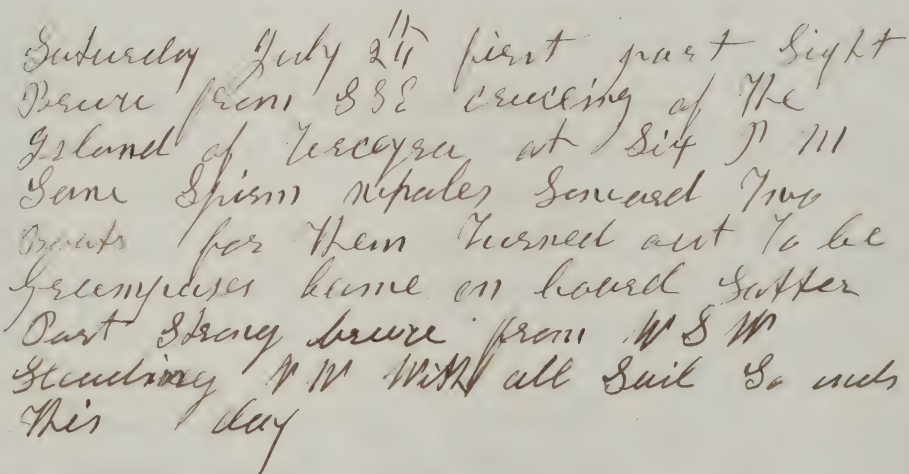 Saturday July 24th first part Light
Breeze from SSE cruceing of The
Island of Terceyra at Six P M
Some Spirm whales Lowered Two
Boats for Them Turned out To be
Greampuses Came on board Latter
Part Strong breeze from W S W
Standing N W With all Sail So ends
This day